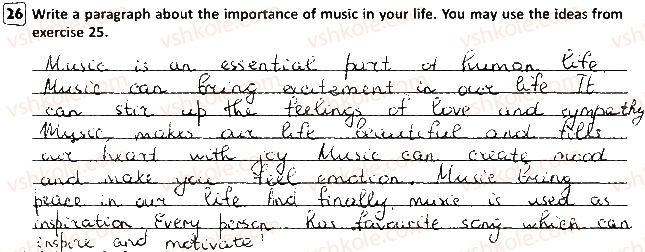 26 Write a paragraph about the importance of music in your life. You may use the ideas from
exercise 25.
Music is an essential part of human life.
Music can bring excitement in our life. It
can stir up the feelings of love and sympathy
Music makes our life beautiful and fills
our heart with joy Music can create mood
and make you feel emotion. Music bring
peace in our life And finally music is used as
inspiration. Every person has favourite song which can
inspire and motivate!